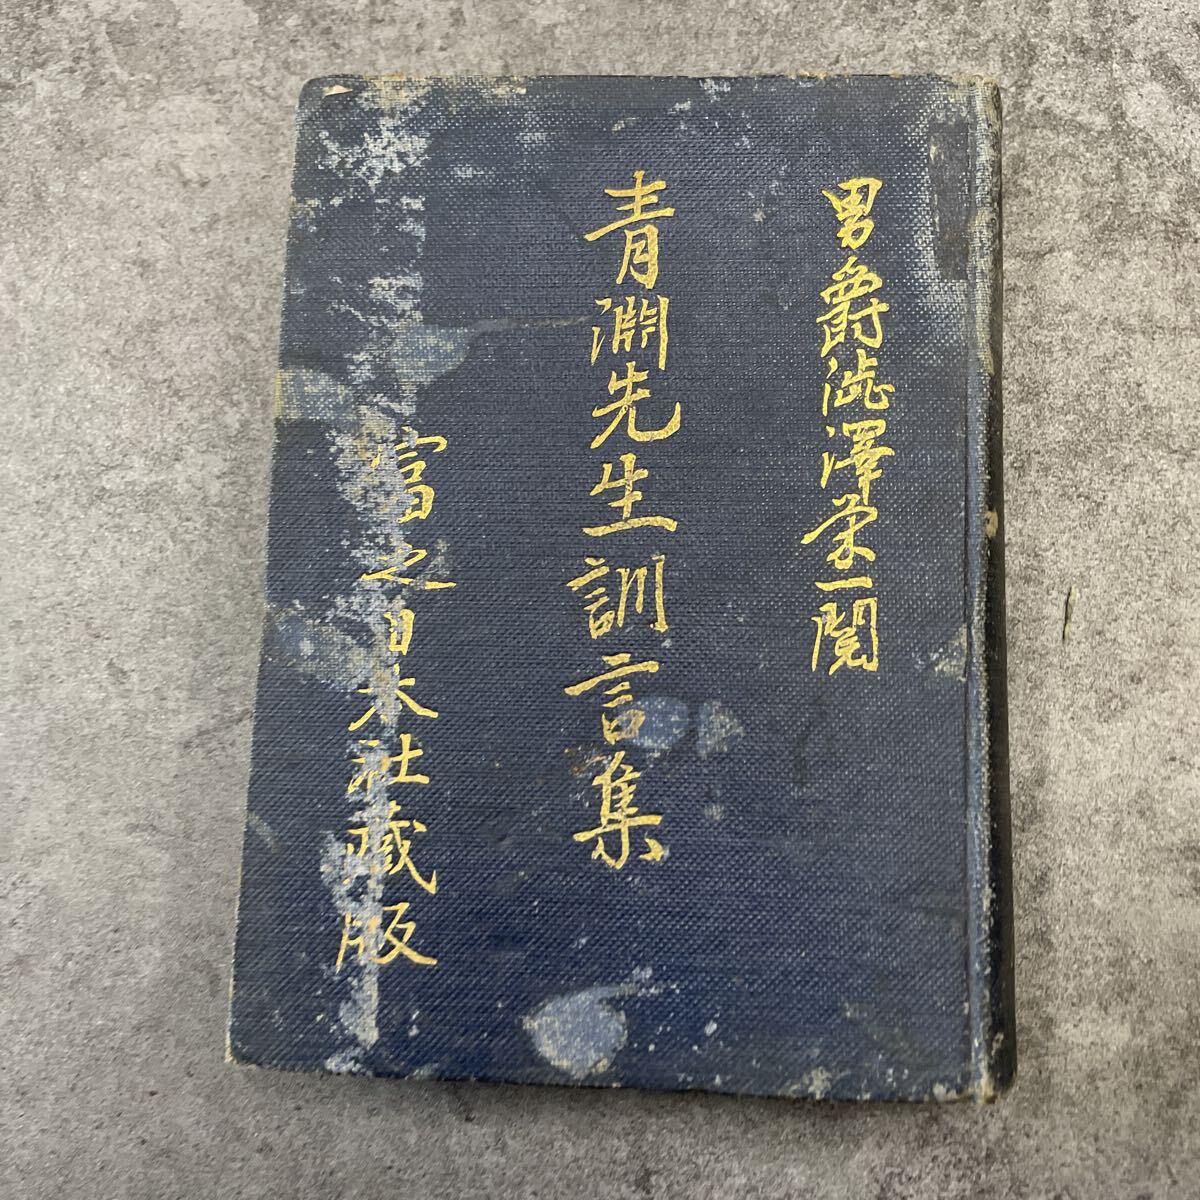 男爵澁澤栄一閲
青淵先生訓言集
富之日本社藏版